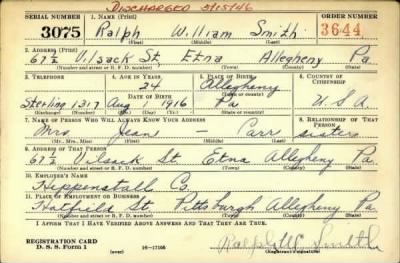 DISCHARGED 3/15/46
SERIAL NUMBER 1. NAME (Print) ORDER NUMBER
3075 Ralph William Smith 3644
2. ADDRESS (Print)
67½ Vilsack St. Etna Allegheny Pa.
3. TELEPHONE 4. AGE IN YEARS 5. PLACE OF BIRTH 6. COUNTRY OF CITIZENSHIP
24 Allegheny
DATE OF BIRTH (Town or county)
Sterling 1317 Aug 1 1916 Pa U.S.A.
7. NAME OF PERSON WHO WILL ALWAYS KNOW YOUR ADDRESS 8. RELATIONSHIP OF THAT PERSON
Mrs Jean — Carr sister
(Mr., Mrs., Miss) (First) (Middle) (Last)
9. ADDRESS OF THAT PERSON
67½ Vilsack St Etna Allegheny Pa.
(Number and street or R. F. D. number) (Town) (County) (State)
10. EMPLOYER'S NAME
Heppenstall Co.
11. PLACE OF EMPLOYMENT OR BUSINESS
Hatfield St. Pittsburgh Allegheny Pa
(Number and street or R. F. D. number) (Town) (County) (State)
I AFFIRM THAT I HAVE VERIFIED ABOVE ANSWERS AND THAT THEY ARE TRUE.
REGISTRATION CARD
D. S. S. Form 1 (over) 16-17105 Ralph W Smith
(Registrant's signature)